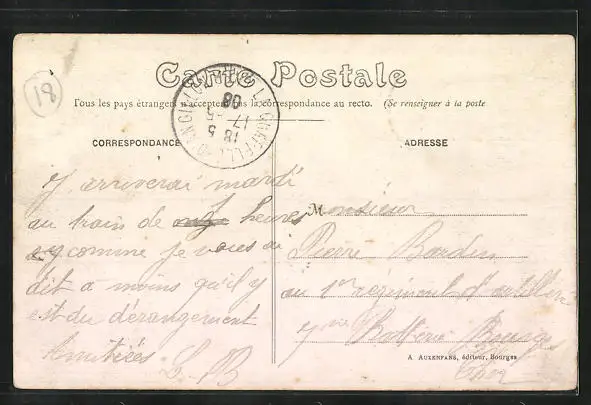 18
Carte Postale
Tous les pays étrangers n'acceptent pas la correspondance au recto. (Se renseigner à la poste
18 5
17 5
08
CORRESPONDANCE
ADRESSE
J arriverai mardi
au train de heures
comme je vous ai
dit à moins qu'il y
est du dérangement
Amitiées L. B
Monsieur
Pierre Bardin
au 1er régiment d'artillerie
7me Batterie Bourges
Cher
A. AUXENFANS, éditeur, Bourges